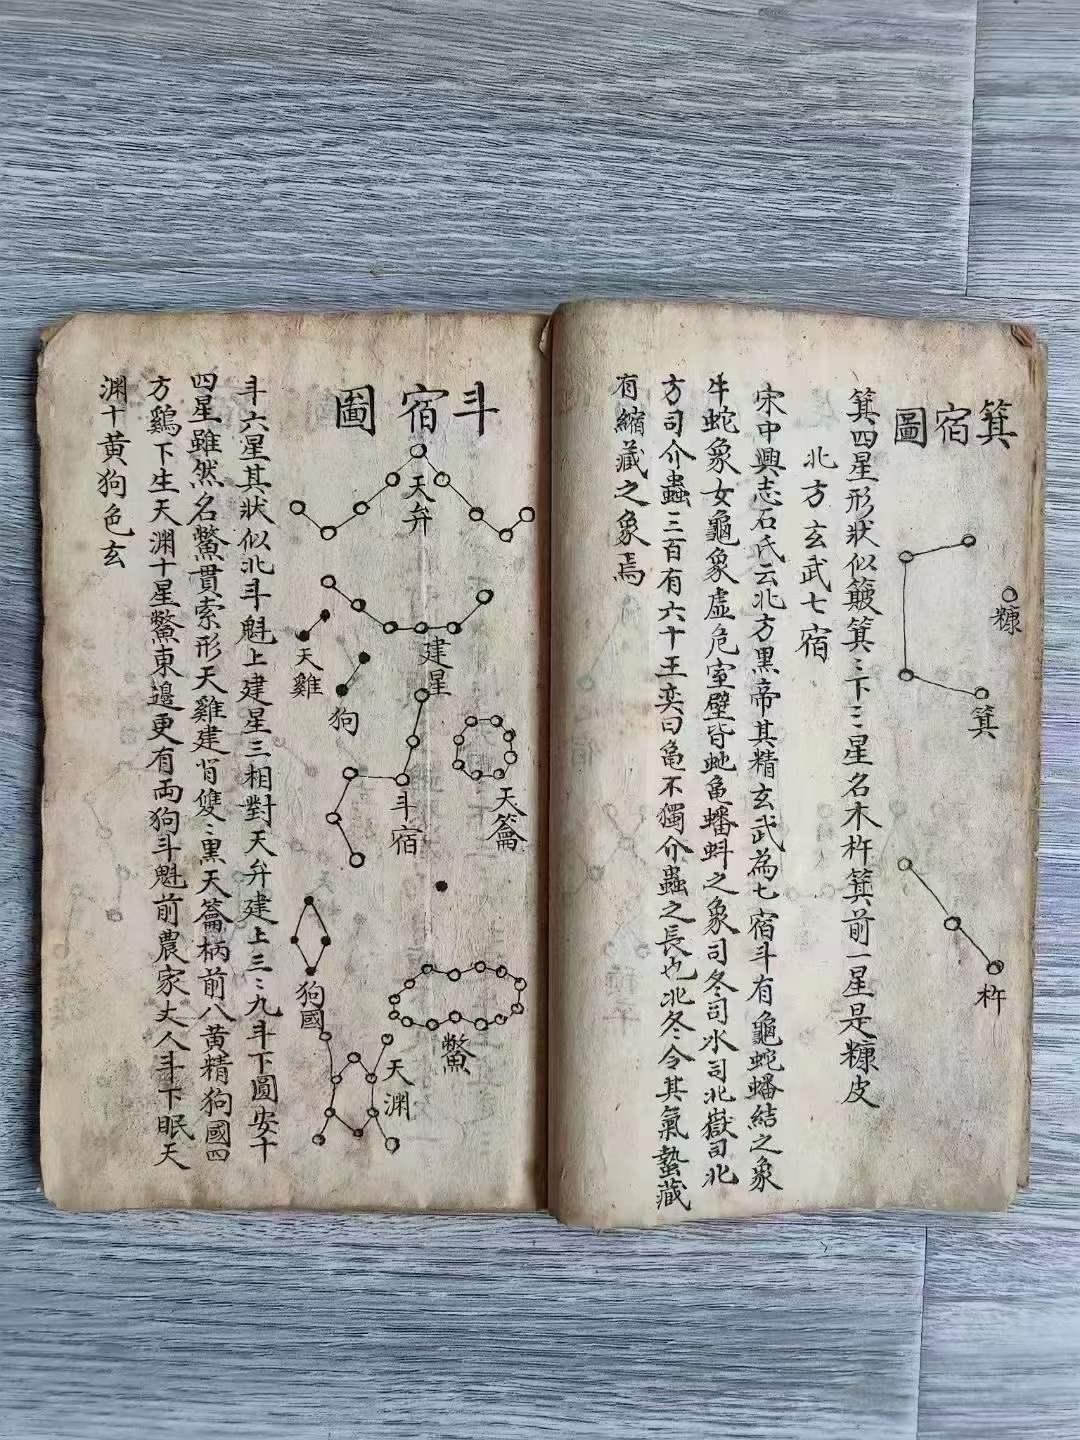 箕宿圖
糠
箕
杵
箕四星形狀似簸箕〻下三星名木杵箕前一星是糠皮
北方玄武七宿
宋中興志石氏云北方黑帝其精玄武為七宿斗有龜蛇蟠結之象
牛蛇象女龜象虛危室壁皆虵龜蟠蚪之象司冬司水司北嶽司北
方司介蟲三百有六十王奕曰龜不獨介蟲之長也北冬令其氣蟄藏
有縮藏之象焉
斗宿圖
天弁
建星
天雞
狗
斗宿
天籥
狗國
鱉
天渊
斗六星其狀似北斗魁上建星三相對天弁建上三〻九斗下圓安十
四星雖然名鱉貫索形天雞建背雙〻黒天籥柄前八黄精狗國四
方鷄下生天渊十星鱉東邊更有両狗斗魁前農家丈人斗下眠天
渊十黄狗色玄